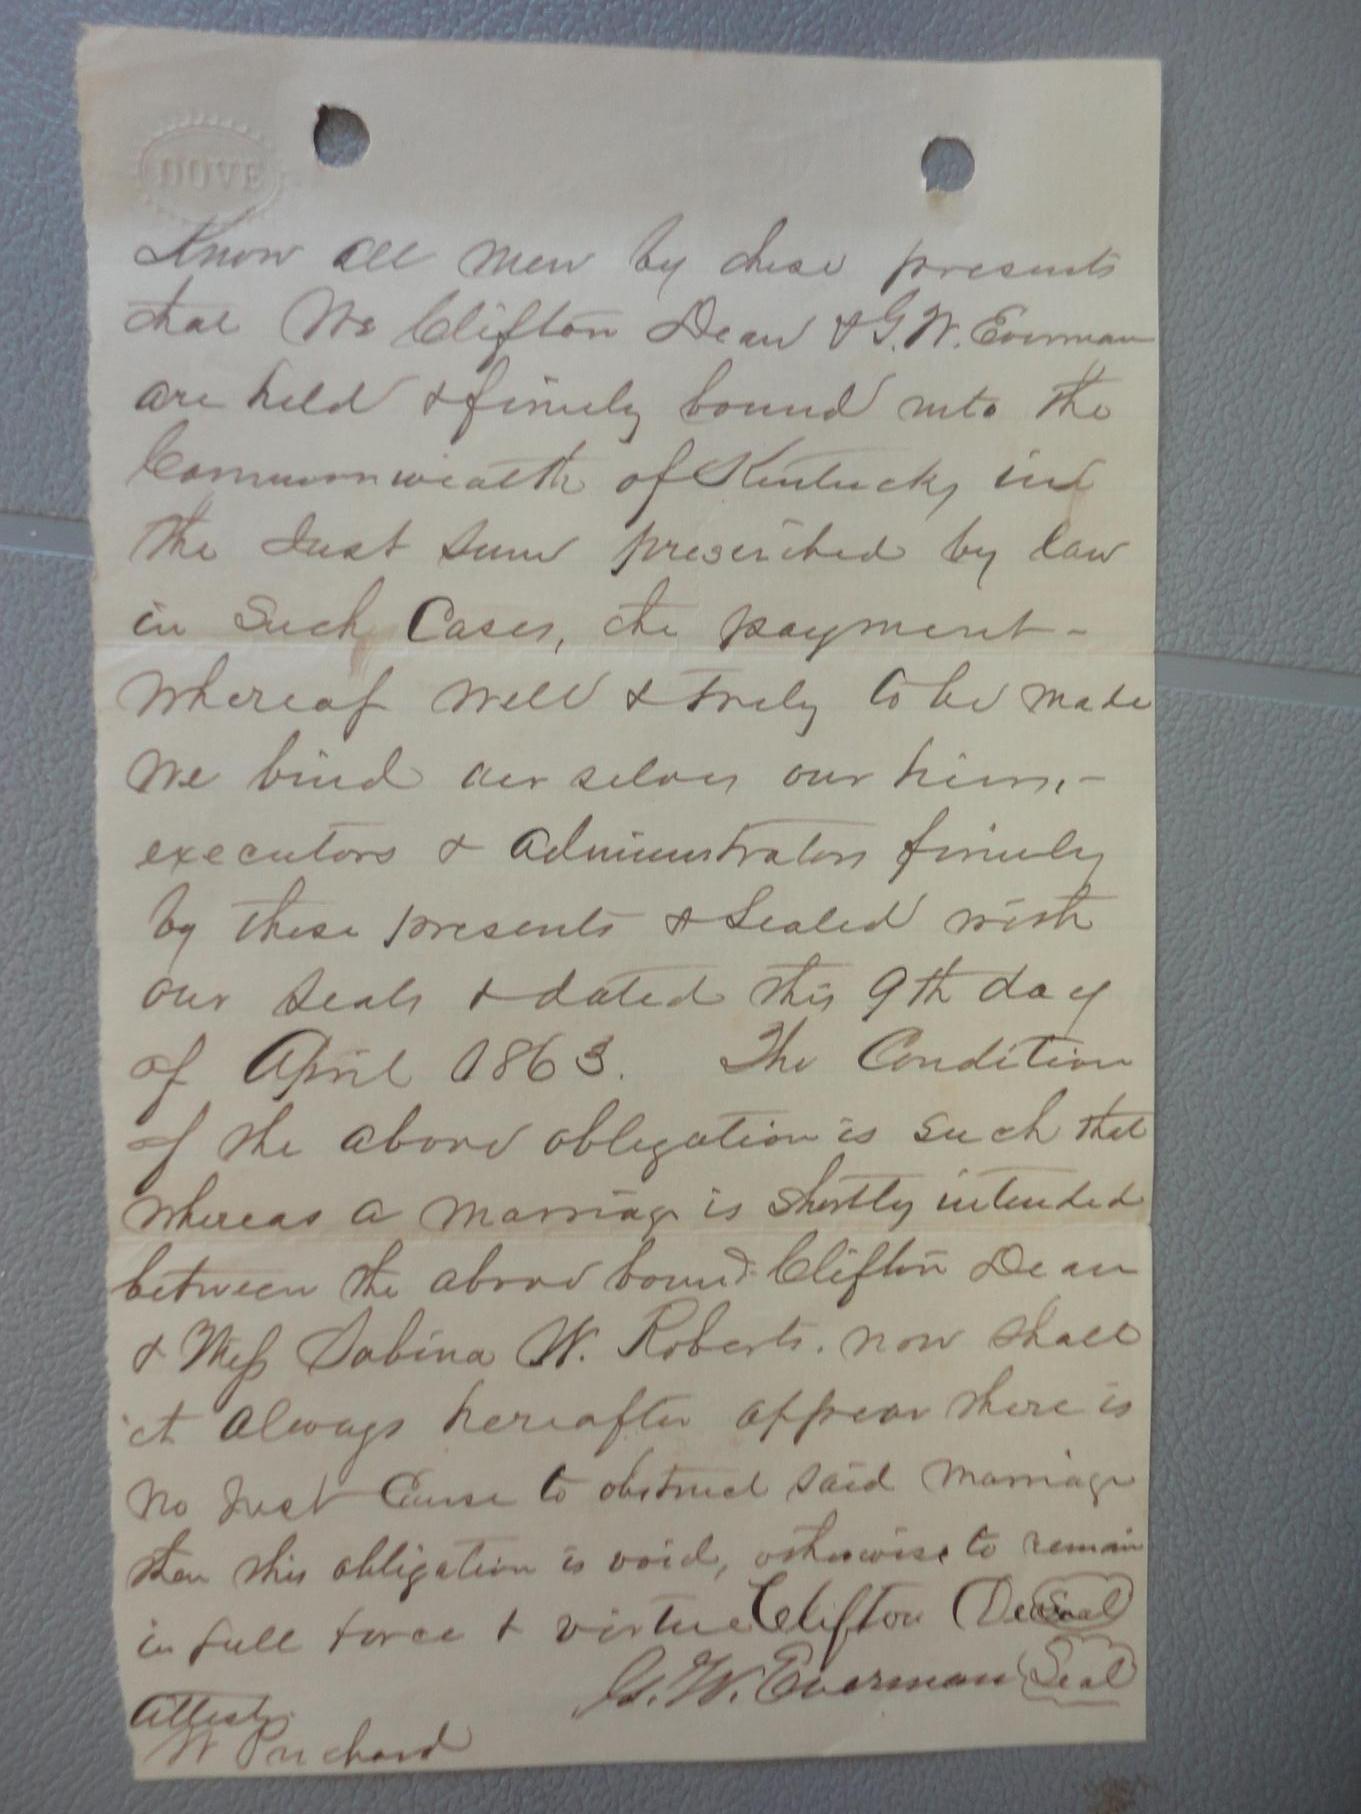 DOVE
Know all men by these presents
that We Clifton Dean & G. W. Everman
are held & firmly bound unto the
Commonwealth of Kentucky in
the Just sum prescribed by law
in Such Cases, the payment -
Whereof well & truly to be made
We bind our selves our heirs, -
executors & administrators firmly
by these presents & Sealed with
our seals & dated this 9th day
of April 1863. The Condition
of the above obligation is such that
Whereas a marriage is shortly intended
between the above bound Clifton Dean
& Miss Sabina W. Roberts. now shall
it always hereafter appear there is
no Just Cause to obstruct said marriage
then this obligation is void, otherwise to remain
in full force & virtue Clifton Dean Seal
G. W. Everman Seal
Attest.
W Prichard